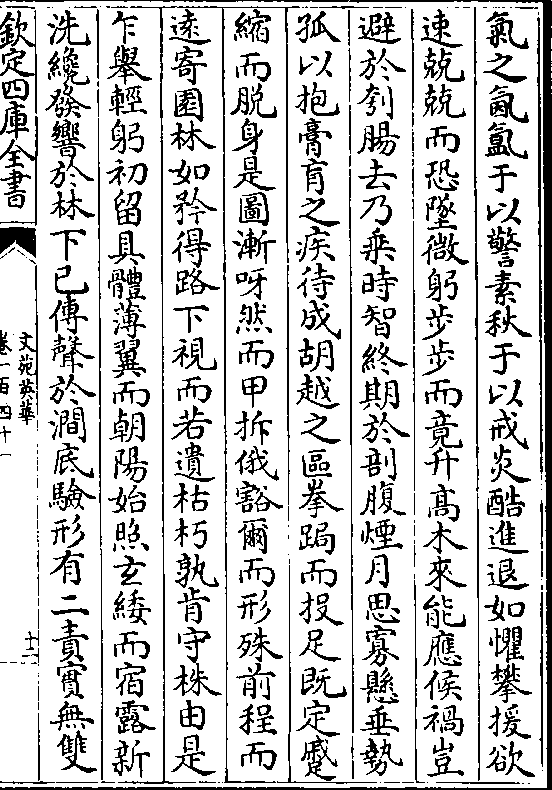 氣之氤氳于以警素秋于以戒炎酷進退如懼攀援欲
速兢兢而恐墜微躬步步而竟升高木來能應候禍豈
避於刳腸去乃乘時智終期於剖腹煙月思寡懸垂勢
孤以抱膏肓之疾待成胡越之區拳跼而投足既定蹙
縮而脫身是圖漸呀然而甲拆俄豁爾而形殊前程而
遠寄園林如矜得路下視而若遺枯朽孰肯守株由是
乍舉輕躬初留具體薄翼而朝陽始照玄緌而宿露新
洗纔發響於林下已傳聲於澗底驗形有二責實無雙
欽定四庫全書
文苑英華
卷一百四十一
十二